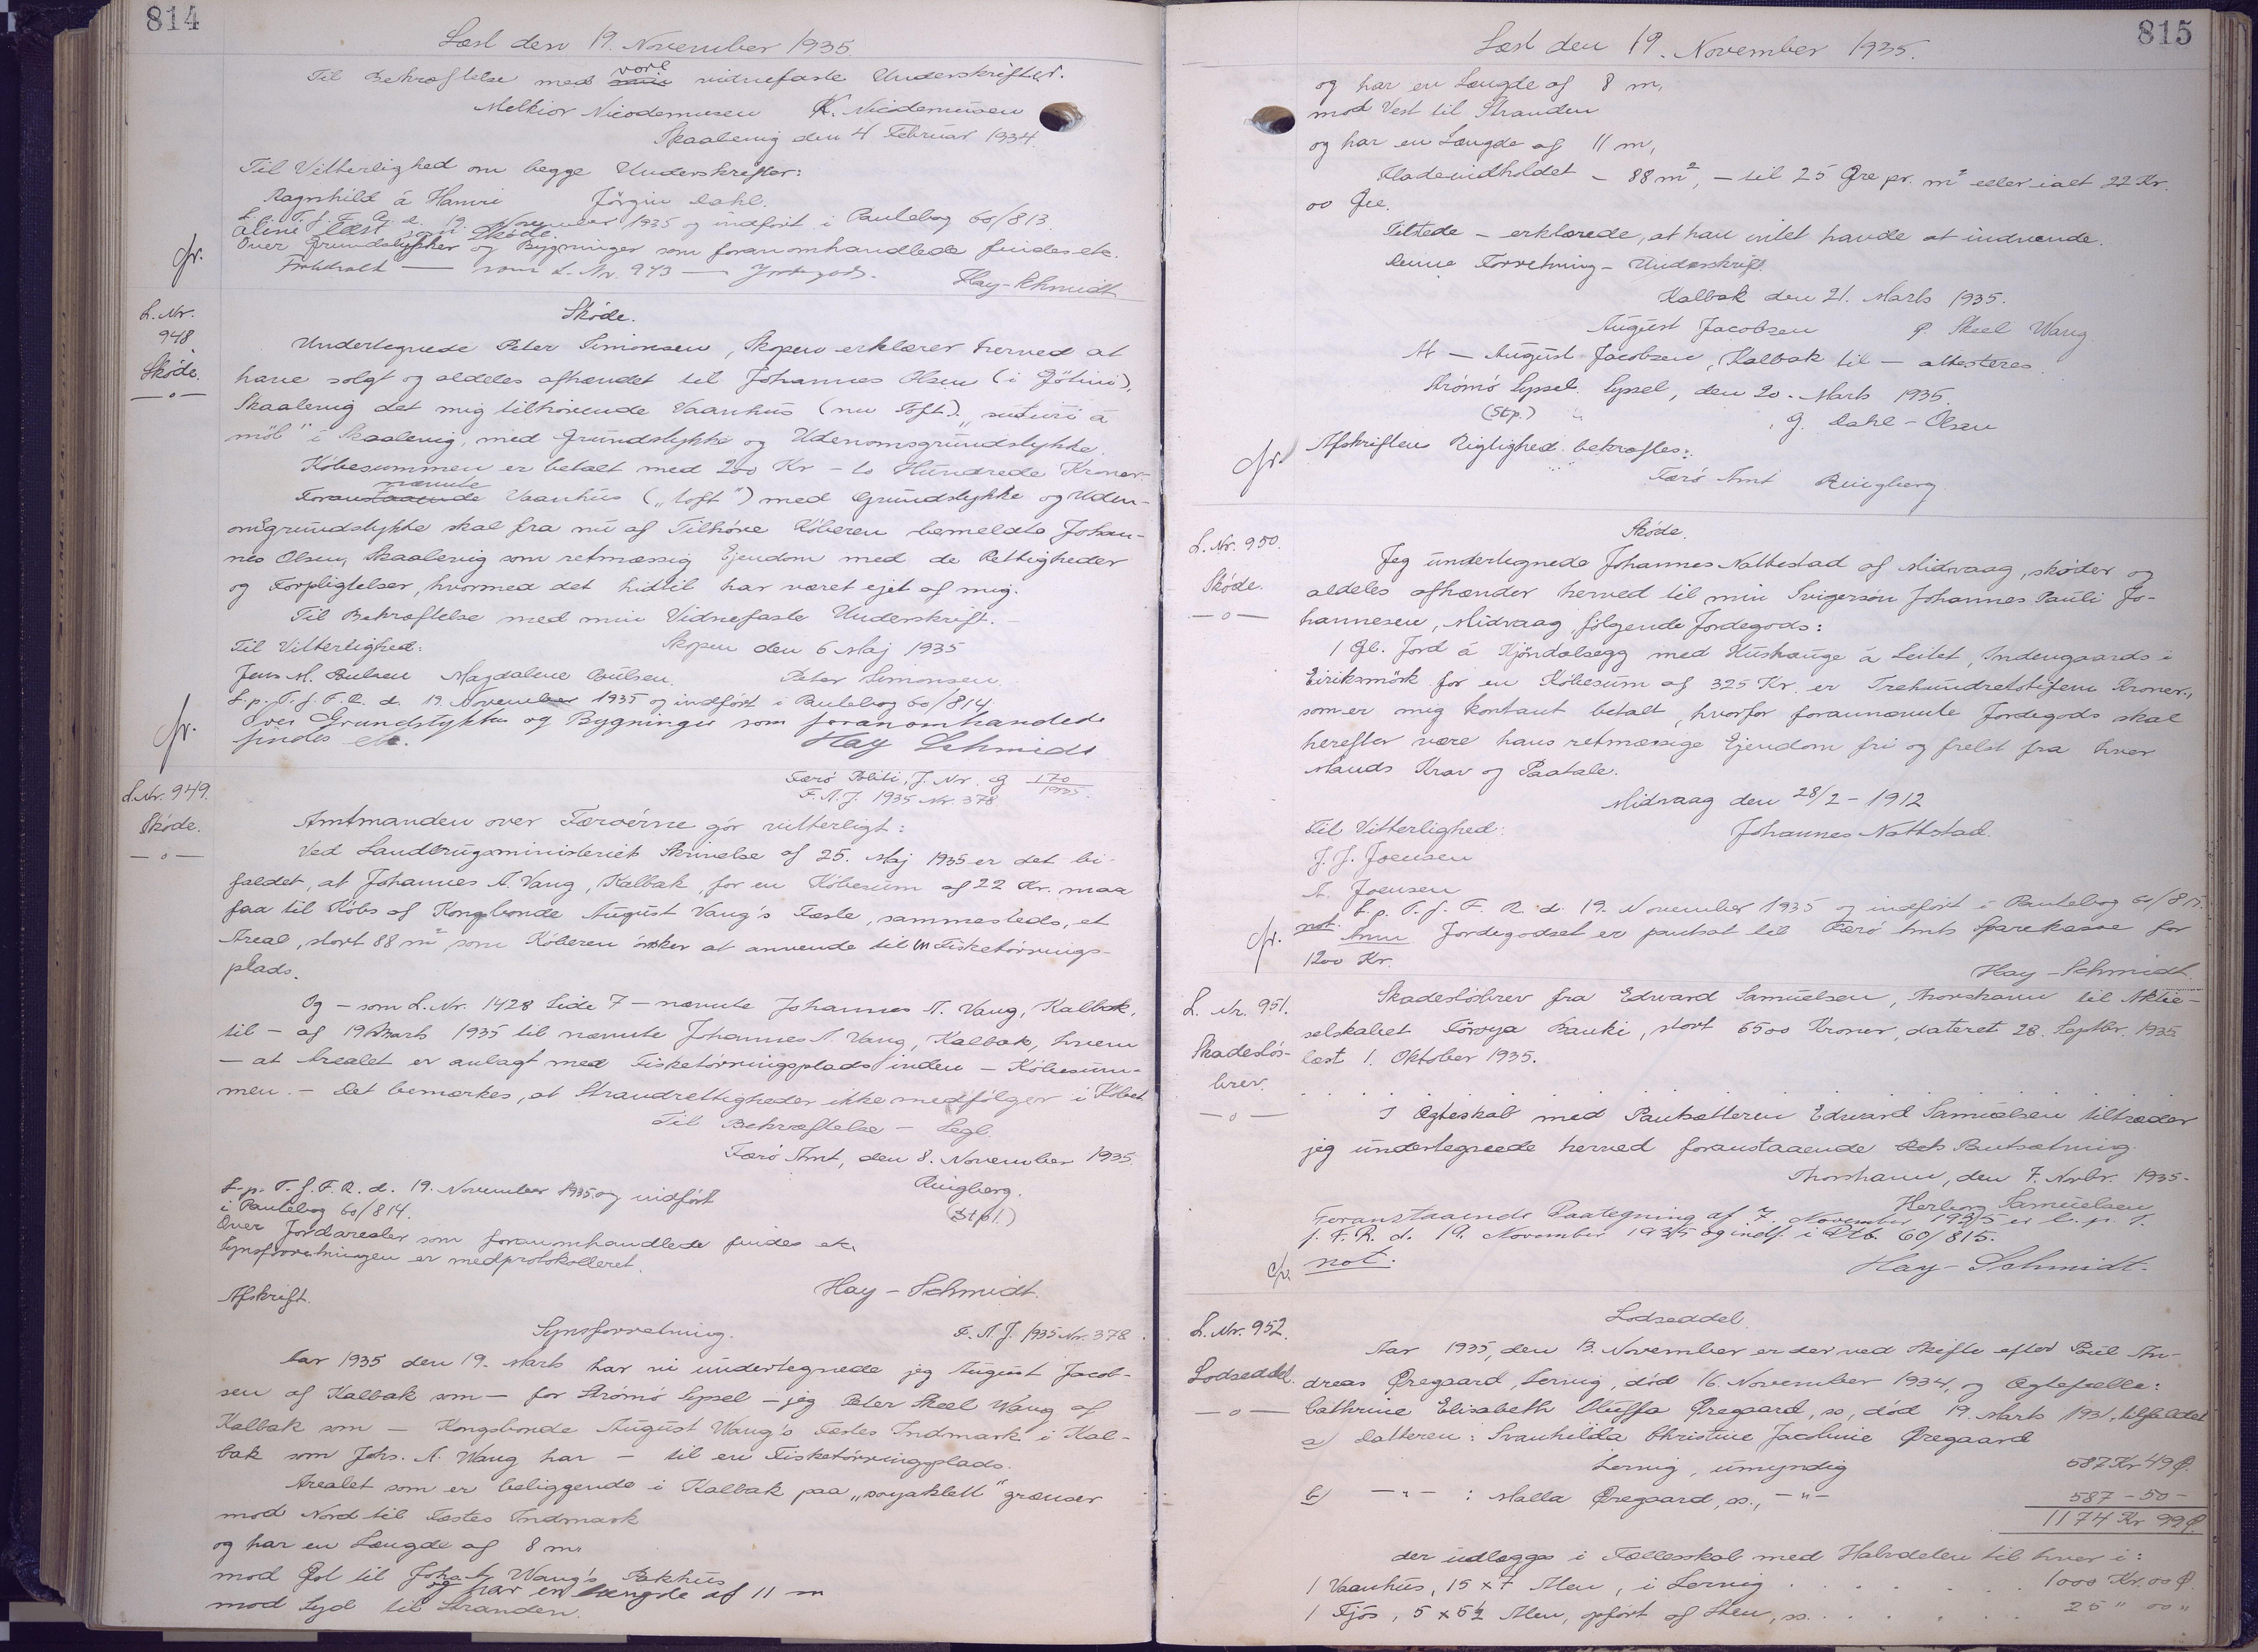 814
Læst den 19. November 1935
Til Bekræftelse med min vore vidnefaste Underskrifter.
Melkior Nicodemusen K. Nicodemusen
Skaalevig den 4 Februar 1934.
Til Vitterlighed om begge Underskrifter:
Ragnhild á Hamri Jörgin Dahl.
L. p. T. f. F. R. d. 19. November 1935 og indført i Pantebog 60/813.
alene læst som Skøde.
Over Grundstykker og Bygninger som foranomhandlede findes etc.
Forbeholdt — som L. Nr. 943 — Jordegods.
Hay-Schmidt
fr.
L. Nr.
948
Skøde.
—o—
Skøde.
Undertegnede Peter Simonsen, Skopen erklærer herved at
have solgt og aldeles afhændet til Johannes Olsen (i Gøtuni),
Skaalevig det mig tilhørende Vaanhus (nu Toft). „suðuri á
möl" i Skaalevig, med Grundstykke og Udenomsgrundstykke.
Købesummen er betalt med 200 Kr — to Hundrede Kroner.
Foranstaaende nævnte Vaanhus („Toft") med Grundstykke og Uden-
omsgrundstykke skal fra nu af Tilhøre Køberen bemeldte Johan-
nes Olsen, Skaalevig som retmæssig Ejendom med de Rettigheder
og Forpligtelser, hvormed det hidtil har været ejet af mig.
Til Bekræftelse med min Vidnefaste Underskrift.
Til Vitterlighed: Skopen den 6 Maj 1935
Jens M. Poulsen Magdalene Poulsen. Peter Simonsen.
L. p. T. f. F. R. d. 19. November 1935 og indført i Pantebog 60/814.
Over Grundstykker og Bygninger som foranomhandlede
findes etc. Hay Schmidt
fr.
L. Nr. 949.
Skøde.
—o—
Færø Politi, J. Nr. G 170/1935.
F. A. J. 1935 Nr. 378
Amtmanden over Færøerne gør vitterligt:
Ved Landbrugsministeriets Skrivelse af 25. Maj 1935 er det bi-
faldet, at Johannes A. Vang, Kalbak, for en Købesum af 22 Kr. maa
faa til Købs af Kongsbonde August Vang's Fæste, sammesteds, et
Areal, stort 88 m², som Køberen ønsker at anvende til en Fisketørrings-
plads.
Og — som L. Nr. 1428 Side 7 — nævnte Johannes A. Vang, Kalbak,
til — af 19 Marts 1935 til nævnte Johannes A. Vang, Kalbak, hvem
— at Arealet er anlagt med Fisketørringsplads inden — Købesum-
men. — Det bemærkes, at Strandrettigheder ikke medfølger i Købet
Til Bekræftelse — Segl.
Færø Amt, den 8. November 1935.
Ringberg.
(Stpl.)
L. p. T. f. F. R. d. 19. November 1935 og indført
i Pantebog 60/814.
Over Jordarealer som foranomhandlede findes etc.
Synsforretningen er medprotokolleret.
Hay-Schmidt.
Afskrift.
Synsforretning. F. A. J. 1935 Nr. 378.
Aar 1935 den 19. Marts har vi undertegnede jeg August Jacob-
sen af Kalbak som — for Strømø Syssel — jeg Peter Skeel Wang af
Kalbak som — Kongsbonde August Wang's Fæstes Indmark i Kal-
bak som Johs. A. Wang har — til en Fisketørringsplads.
Arealet som er beliggende i Kalbak paa „ograklett" grænser
mod Nord til Fæstes Indmark
og har en Længde af 8 m,
mod Øst til Johs A Wang's Pakhus
og har en Længde af 11 m
mod Syd til Stranden.
815
Læst den 19. November 1935.
og har en Længde af 8 m,
mod Vest til Stranden
og har en Længde af 11 m,
Fladeindholdet — 88 m², — til 25 Øre pr. m² eller ialt 22 Kr.
00 Øre.
Tilstede — erklærede, at han intet havde at indvende.
Denne Forretning — Underskrift.
Kalbak den 21. Marts 1935.
August Jacobsen P. Skeel Wang
At — August Jacobsen, Kalbak til — attesteres
Strømø Syssel. Syssel, den 20. Marts 1935.
(Stp.) G. Dahl-Olsen
Afskriftens Rigtighed bekræftes:
fr.
Færø Amt Ringberg.
L. Nr. 950.
Skøde.
—o—
Skøde.
Jeg undertegnede Johannes Nattestad af Midvaag, skøder og
aldeles afhænder herved til min Svigersøn Johannes Pauli Jo-
hannesen, Midvaag følgende Jordegods:
1 Gl. Jord á Kjøndalsegg med Hushauge á Leitet, Indengaards i
Eiriksmörk for en Købesum af 325 Kr. er Trehundretotifem Kroner,
som er mig kontant betalt, hvorfor forannævnte Jordegods skal
herefter være hans retmæssige Ejendom fri og frelst fra hver
Mands Krav og Paatale.
Midvaag den 28/2 - 1912
Til Vitterlighed: Johannes Nattstad.
J. J. Joensen
A. Joensen
L. p. T. f. F. R. d. 19. November 1935 og indført i Pantebog 60/815.
not.
Anm Jordegodset er pantsat til Færø Amts Sparekasse for
1200 Kr.
Hay-Schmidt.
fr.
L. Nr. 951.
Skadesløs-
brev.
—o—
Skadesløsbrev fra Edward Samuelsen, Thorshavn til Aktie-
selskabet Føroya Banki, stort 6500 Kroner, dateret 28. Septbr. 1935
læst 1. Oktober 1935.
I Ægteskab med Pantsætteren Edward Samuelsen tiltræder
jeg undertegnede herved foranstaaende Pantsætning.
Thorshavn, den 7. Novbr. 1935.
Herborg Samuelsen
Foranstaaende Paategning af 7. November 1935 er l. p. T.
f. F. R. d. 19. November 1935 og indf. i Ptb. 60/815.
not. Hay-Schmidt.
fr.
L. Nr. 952.
Lodseddel.
—o—
Lodseddel.
Aar 1935, den 13. November er der ved Skifte efter Poul An-
dreas Øregaard, Lervig, død 16. November 1934, og Ægtefælle:
Cathrine Elisabeth Oluffa Øregaard, ss., død 19. Marts 1931, tilfaldet
a) Datteren: Svanhilda Christine Jacobine Øregaard
Lervig, umyndig 587 Kr 49 Ø.
b) —"— : Malla Øregaard, ss., —"— 587 - 50 -
1174 Kr 99 Ø.
der udlægges i Fællesskab med Halvdelen til hver i:
1 Vaanhus, 15 x 7 Alen, i Lervig . . . . . 1000 Kr. 00 Ø.
1 Fjós, 5 x 5½ Alen, opført af Sten, ss. . . . . . 25 " 00 "